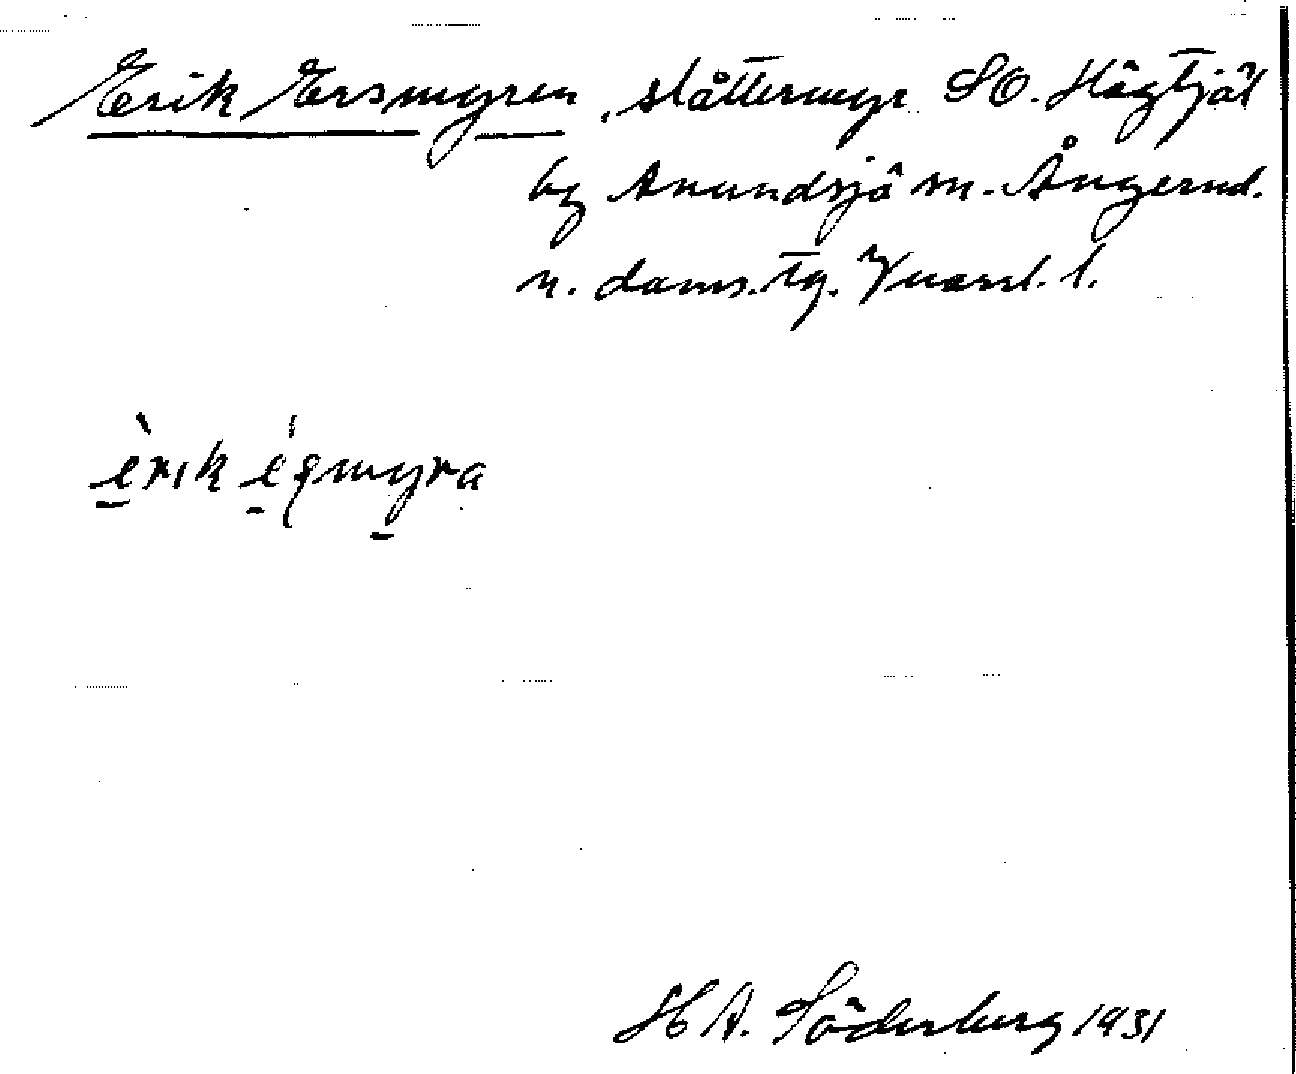 Erik Ersmyren, slåttermyr SO. Högtjäl
by Anundsjö sn. Ångerml.
n. doms.tg. Vnorrl. l.
èrik éʂmyra
H A. Söderberg 1931